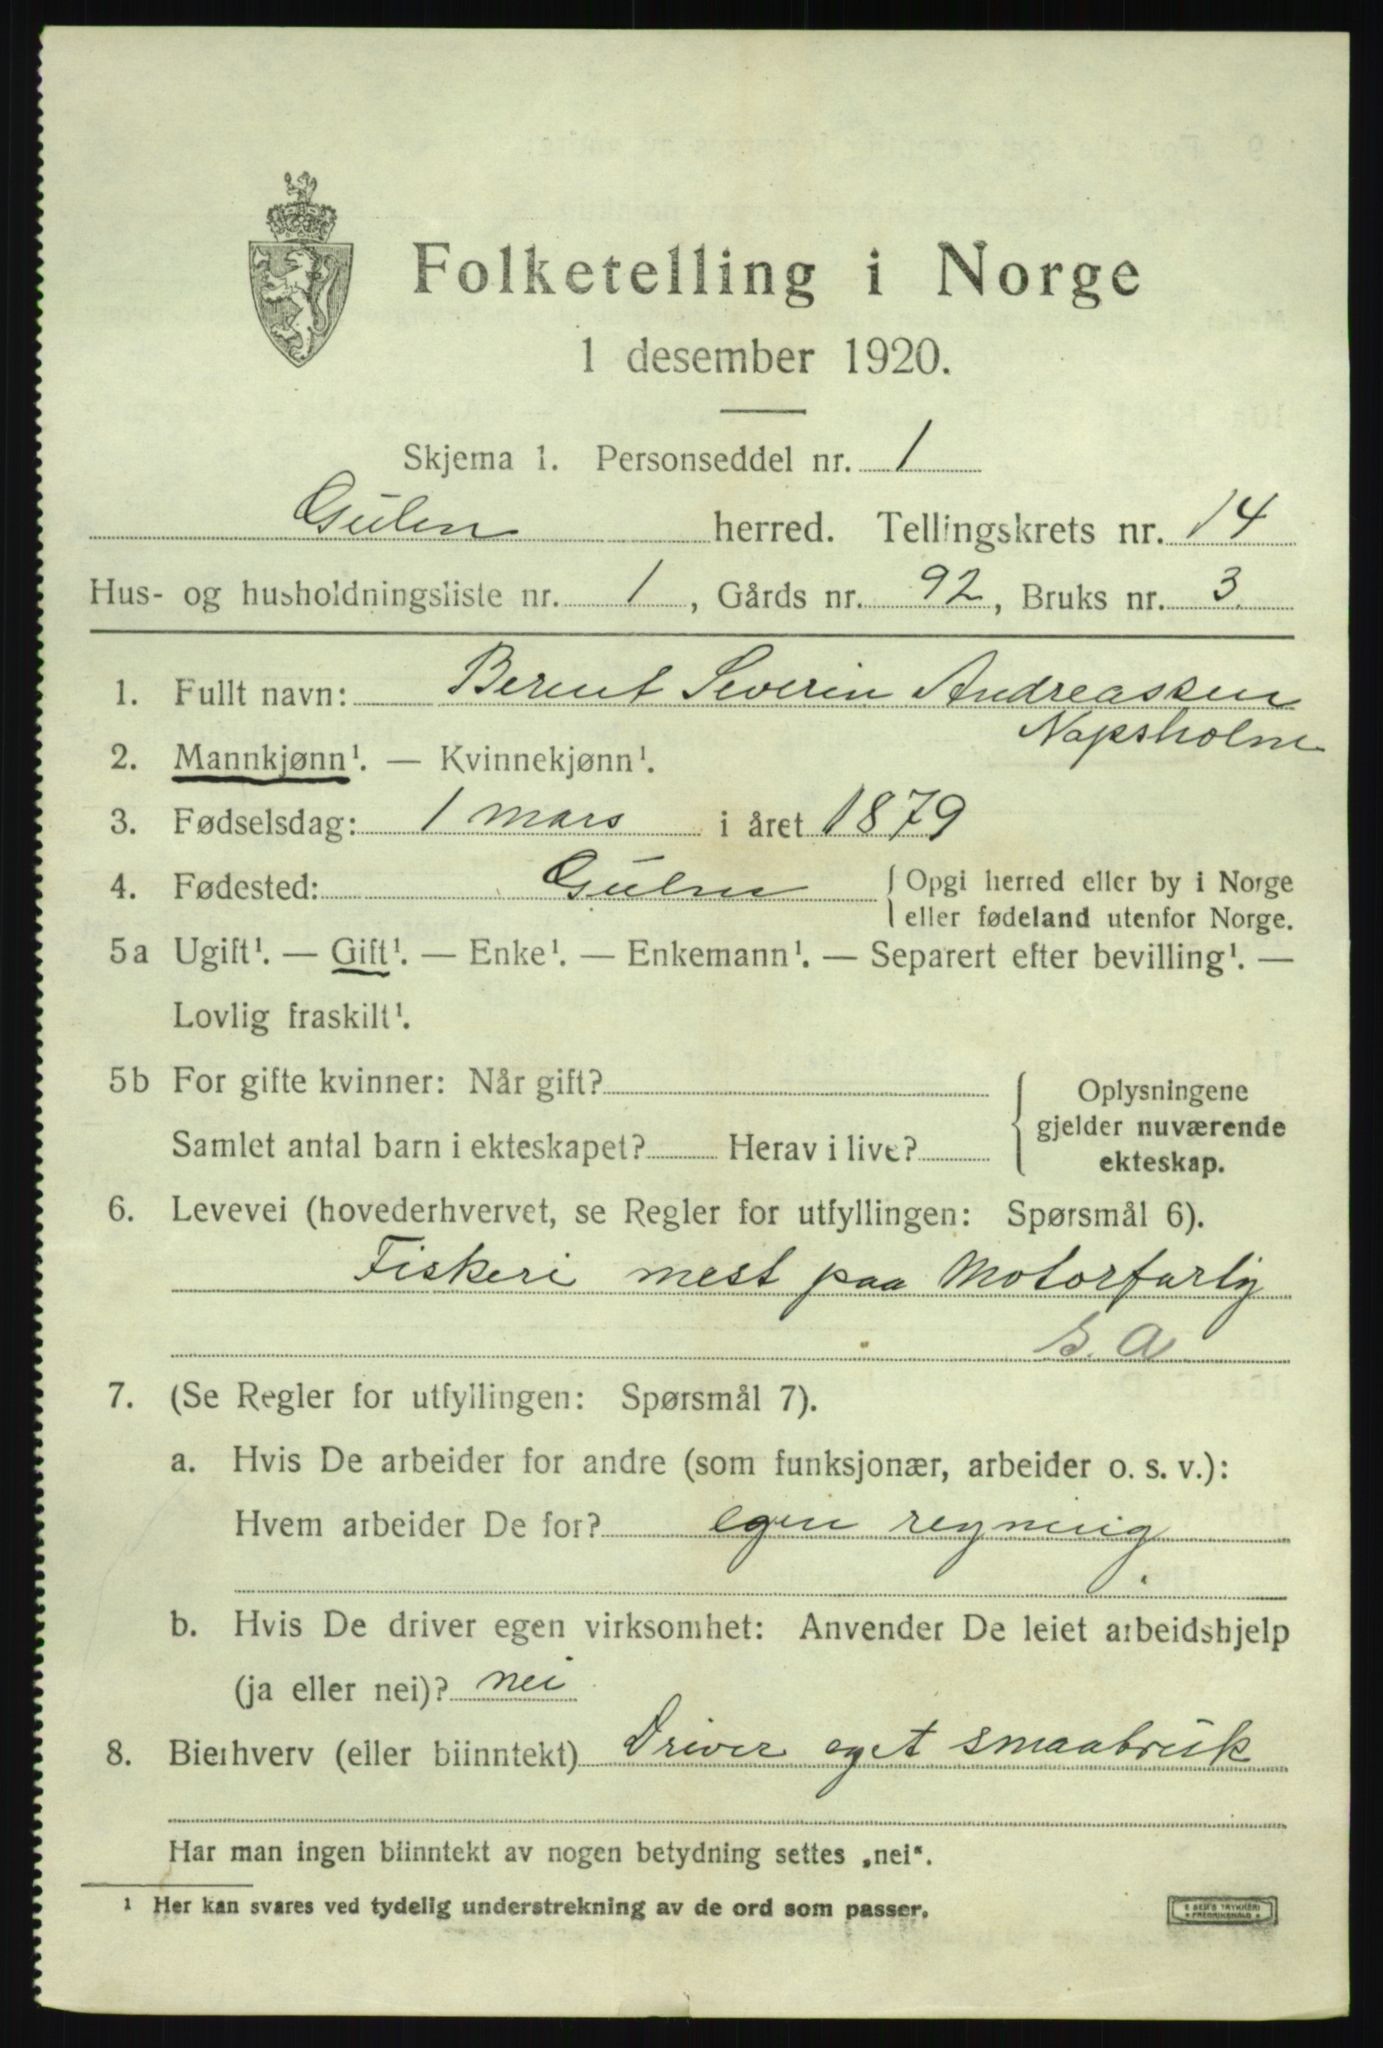 Folketelling i Norge
1 desember 1920.
Skjema 1. Personseddel nr. 1
Gulen herred. Tellingskrets nr. 14
Hus- og husholdningsliste nr. 1, Gårds nr. 92, Bruks nr. 3.
1. Fullt navn: Berent Severin Andreassen
Napsholm
2. Mannkjønn¹. — Kvinnekjønn¹.
3. Fødselsdag: 1 mars i året 1879
4. Fødested: Gulen { Opgi herred eller by i Norge
eller fødeland utenfor Norge.
5a Ugift¹. — Gift¹. — Enke¹. — Enkemann¹. — Separert efter bevilling¹. —
Lovlig fraskilt¹.
5b For gifte kvinner: Når gift?
Samlet antal barn i ekteskapet? Herav i live?
Oplysningene
gjelder nuværende
ekteskap.
6. Levevei (hovederhvervet, se Regler for utfyllingen: Spørsmål 6).
Fiskeri mest paa Motorfartøy
S. A
7. (Se Regler for utfyllingen: Spørsmål 7).
a. Hvis De arbeider for andre (som funksjonær, arbeider o. s. v.):
Hvem arbeider De for? egen regning
b. Hvis De driver egen virksomhet: Anvender De leiet arbeidshjelp
(ja eller nei)? nei
8. Bierhverv (eller biinntekt) Driver eget smaabruk
Har man ingen biinntekt av nogen betydning settes „nei“.
¹ Her kan svares ved tydelig understrekning av de ord som passer.
E SEM'S TRYKKERI
FREDRIKSHALD